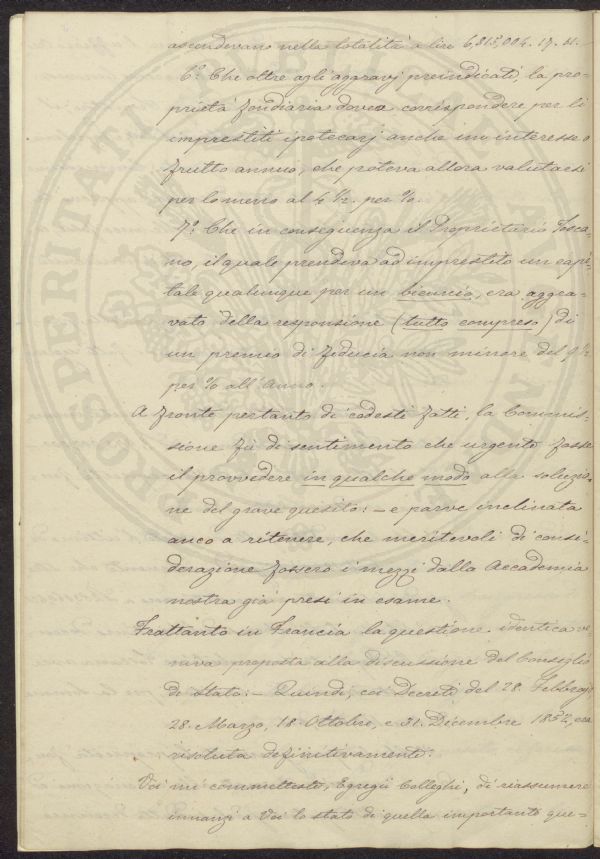 ascendevano nella totalità a lire 6,313,004. 17. 11.
6.° Che oltre agli aggravj preindicati, la pro-
prietà fondiaria dovea corrispondere per li
imprestiti ipotecarj anche un interesse o
frutto annuo, che poteva allora valutarsi
per lo meno al 4 1/2. per %.
7.° Che in conseguenza il Proprietario Tosca-
no, il quale prendeva ad imprestito un capi-
tale qualunque per un biennio, era aggra-
vato della responsione (tutto compreso) di
un premio di fiducia non minore del 9 1/2
per % all'Anno.
A fronte pertanto di codesti fatti, la Commis-
sione fù di sentimento che urgente fosse
il provvedere in qualche modo alla soluzio-
ne del grave quesito: – e parve inclinata
anco a ritenere, che meritevoli di consi-
derazione fossero i mezzi dalla Accademia
nostra già presi in esame.
Frattanto in Francia la questione identica ve-
niva proposta alla discussione del Consiglio
di Stato: – Quindi, coi Decreti del 28. Febbrajo
28. Marzo, 18. Ottobre, e 31. Dicembre 1852, era
risoluta definitivamente:
Voi mi commetteste, Egregii Colleghi, di riassumere
innanzi a Voi lo stato di quella importante que-
PROSPERITATI PUBLICAE